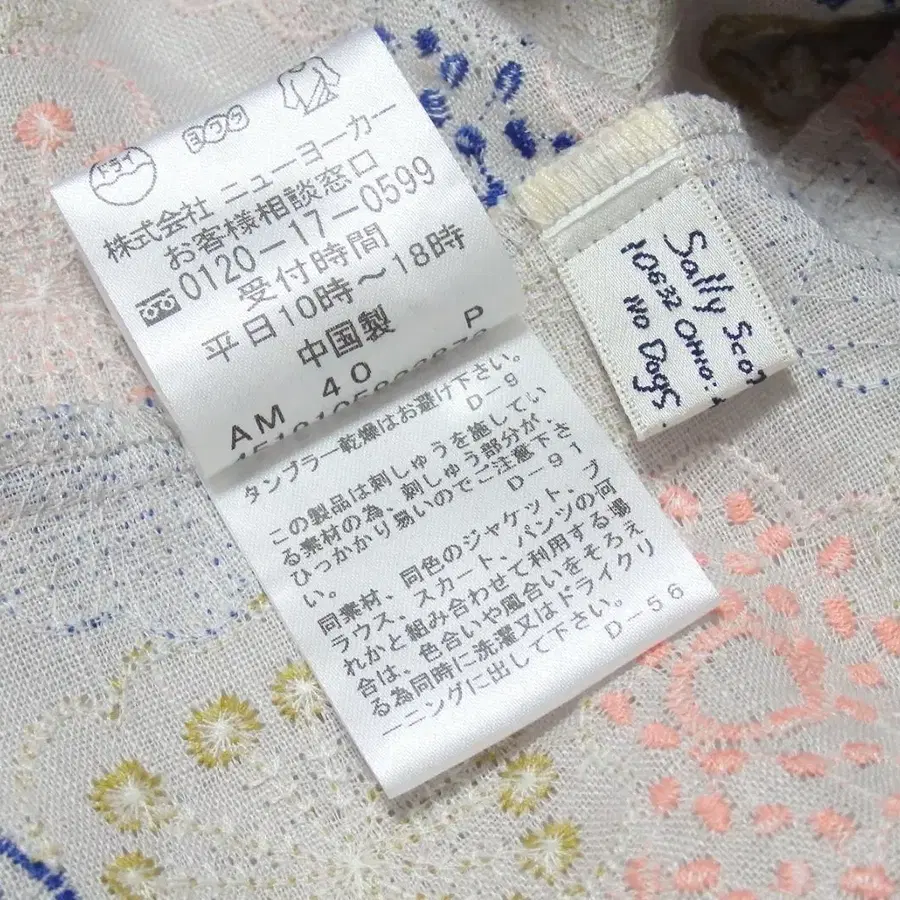 ドライ
ヨワク
株式会社 ニューヨーカー
お客様相談窓口
0120-17-0599
受付時間
平日10時〜18時
中国製
AM 40 P
タンブラー乾燥はお避け下さい。
D-9
この製品は刺しゅうを施してい
る素材の為、刺しゅう部分が、
ひっかかり易いのでご注意下さ
い。 D-91
同素材、同色のジャケット、ブ
ラウス、スカート、パンツの何
れかと組み合わせて利用する場
合は、色合いや風合いをそろえ
る為同時に洗濯又はドライクリ
ーニングに出して下さい。
D-56
Sally Scot
10632 Ohio
No Dogs